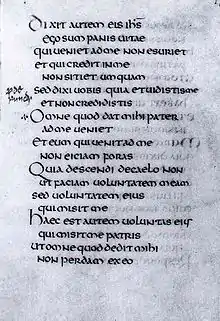 Dixit autem eis ihs
ego sum panis vitae
qui venit ad me non esuriet
et qui credit in me
non sitiet umquam
sed dixi vobis quia et vidistis me
et non credidistis
Omne quod dat mihi pater
ad me veniet
et eum qui venit ad me
non eiciam foras
Quia descendi de caelo non
ut faciam voluntatem meam
sed voluntatem eius
qui misit me
Haec est autem voluntas eius
qui misit me patris
ut omne quod dedit mihi
non perdam ex eo